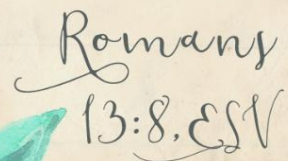 Romans
13:8, ESV